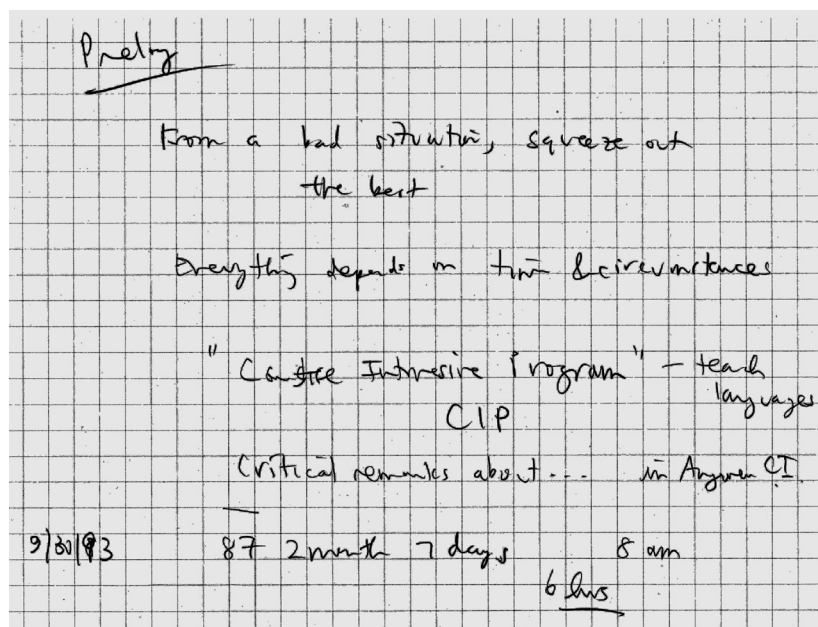 From a bad situation, squeeze out
the best
Everything depends on time & circumstances
" Intensive Program" - teach
languages
CIP
Critical remarks about... in CI
9/30/93 87 2 month 7 days 8 am
6 hrs